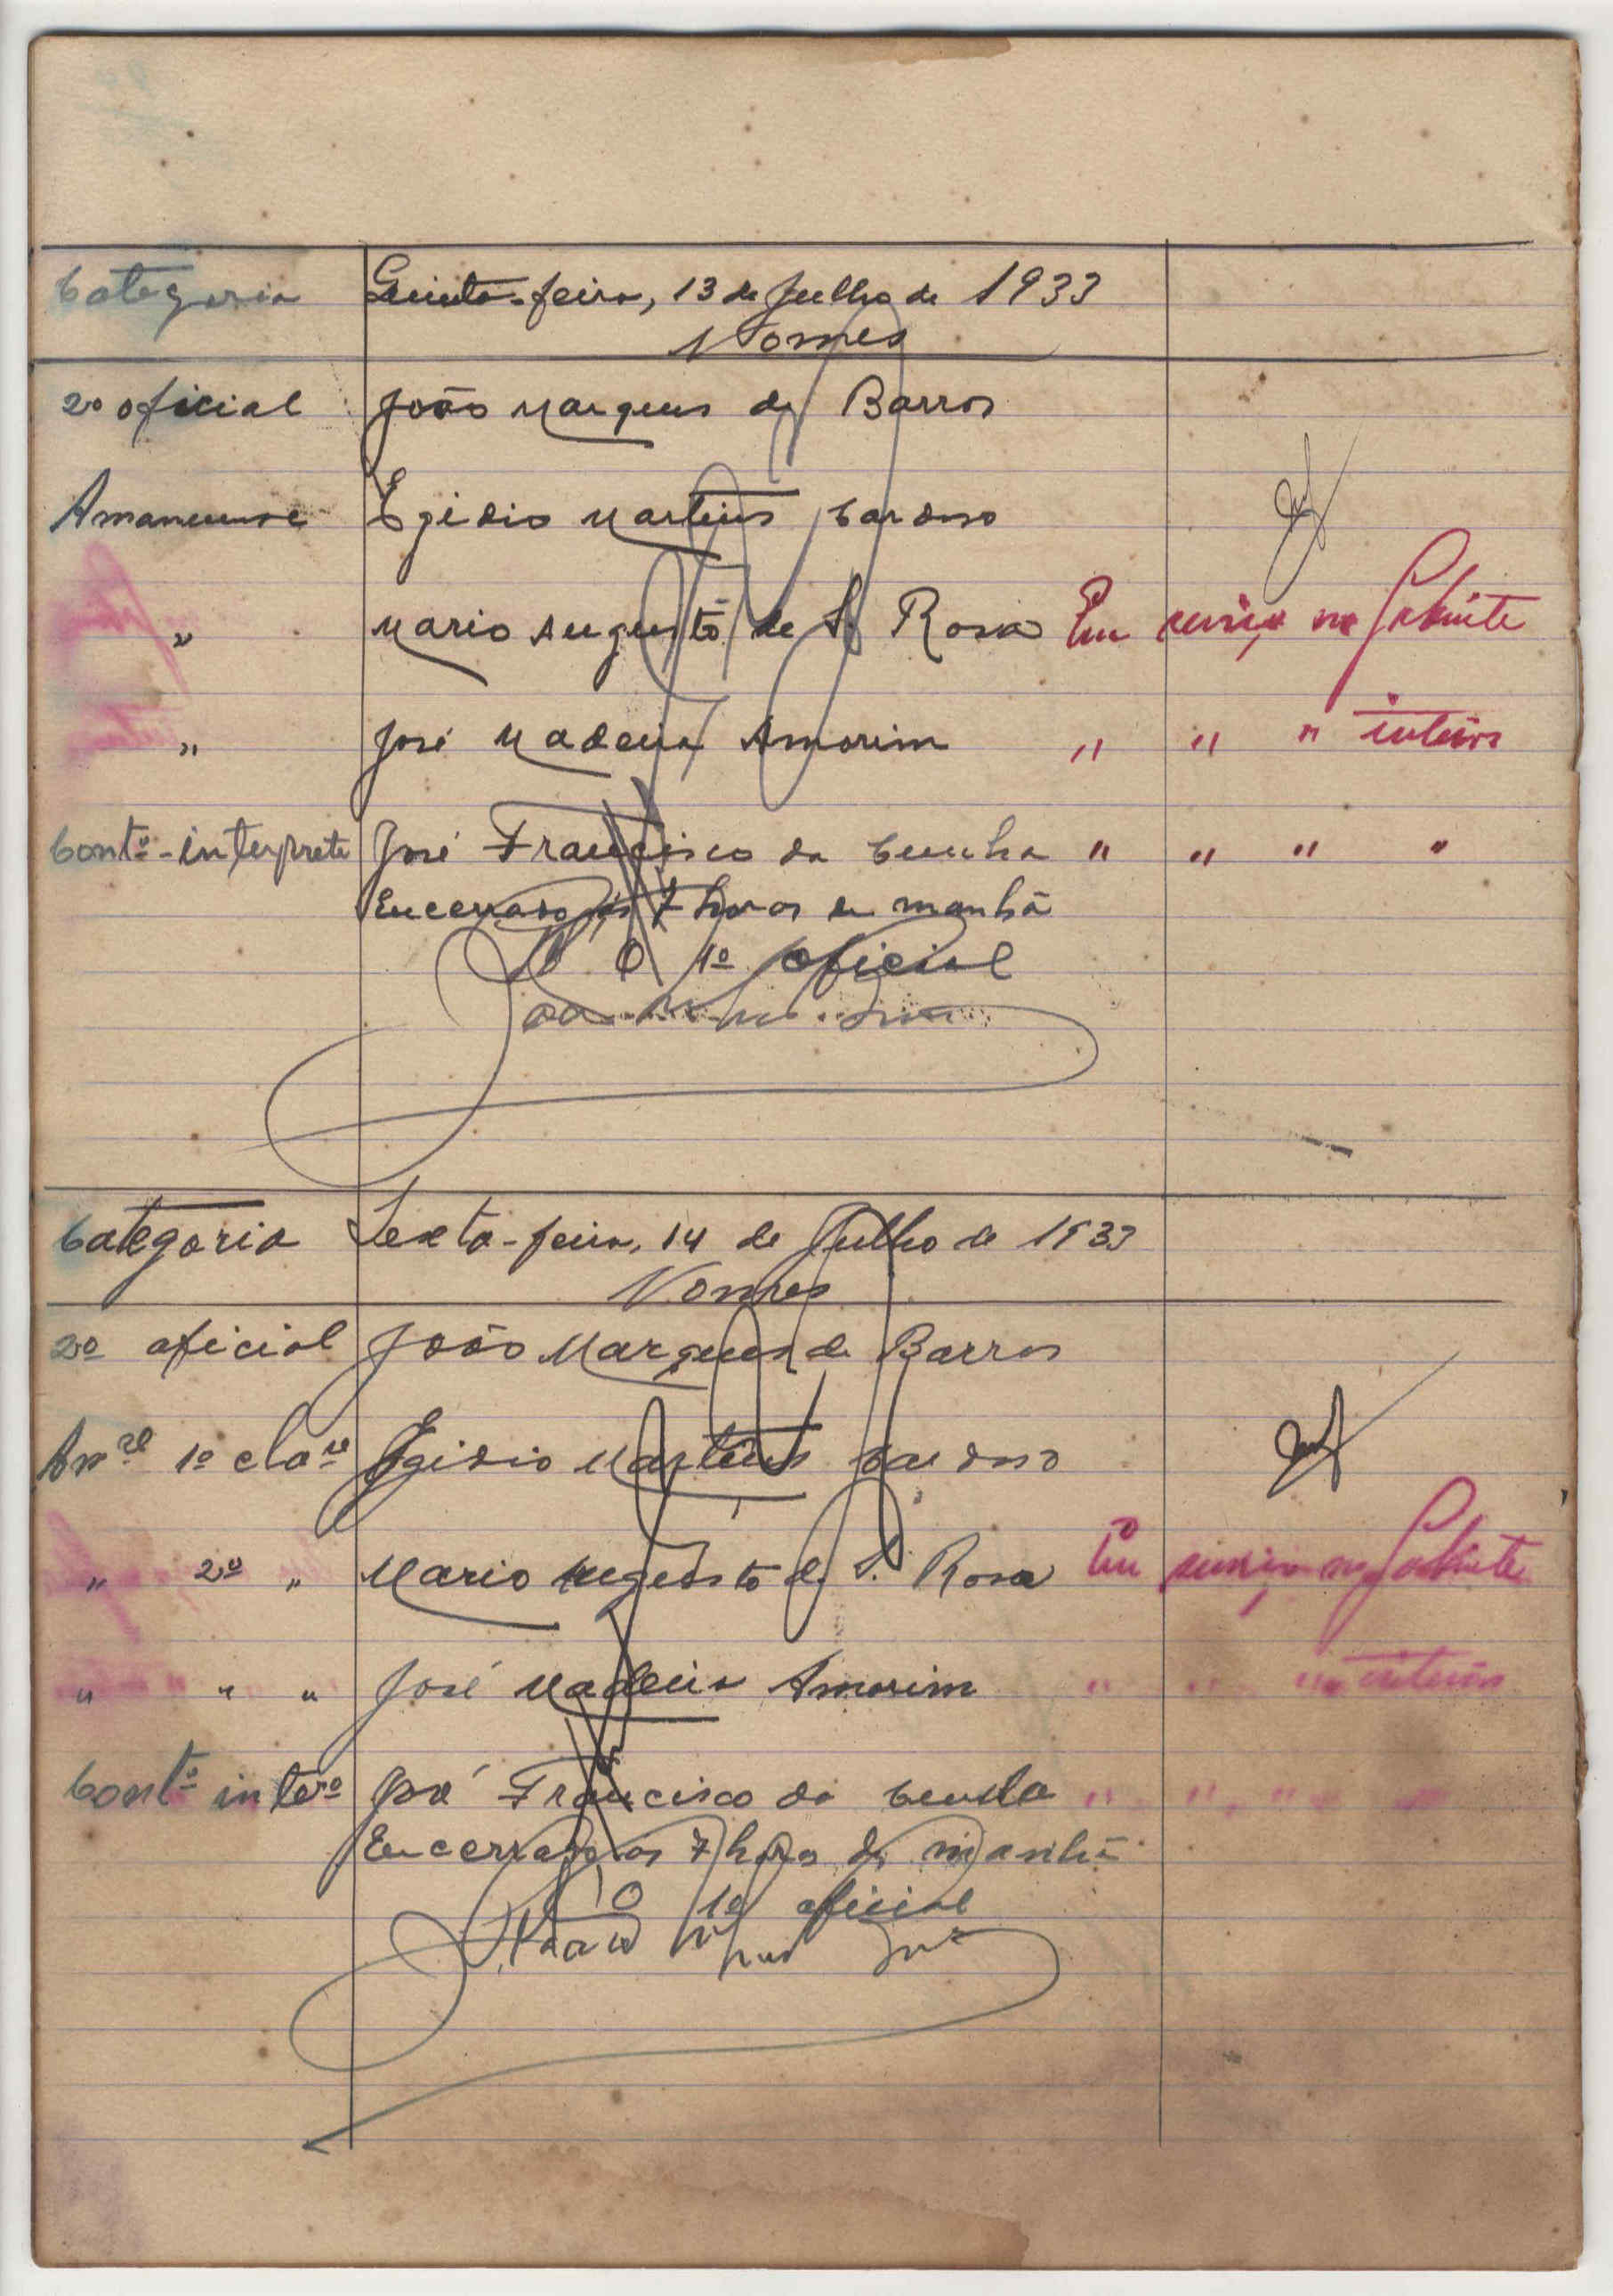 Categoria Quinta-feira, 13 de Julho de 1933
Nomes
2º oficial João Marques de Barros
Amanuense Egidio Martins Cardoso
" Mario Augusto de S. Rosa Em serviço no Gabinete
" José Madeira Amorim " " " interior
Contº-interprete José Francisco da Cunha " " " "
Encerrado ás 7 horas da manhã
O 1º oficial
Categoria Sexta-feira, 14 de Julho de 1933
Nomes
2º oficial João Marques de Barros
1º Egidio Martins Cardoso
" 2º " Mario Augusto de S. Rosa Em serviço no Gabinete
" " " José Madeira Amorim " " " interior
Contº intero José Francisco da Cunha " " " "
Encerrado ás 7 horas da manhã
O 1º oficial